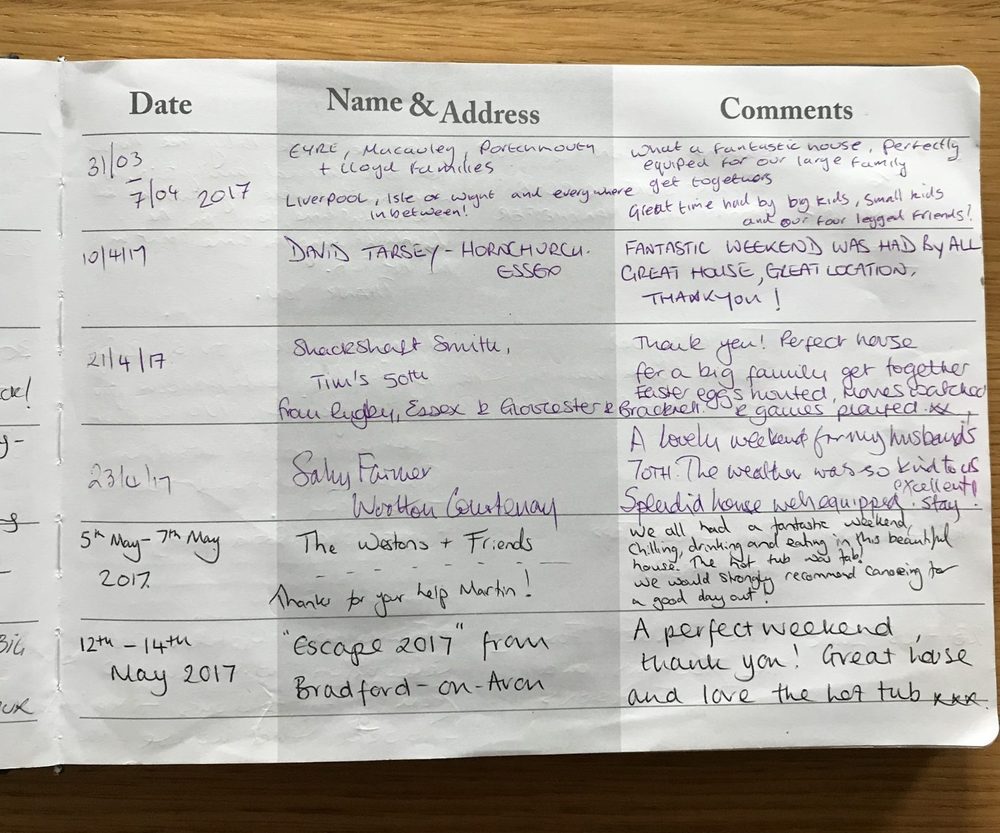 Date Name & Address Comments
31/03
7/04 2017
EYRE, Macauley, Portchmouth
+ Lloyd Families
Liverpool, Isle of Wight and everywhere
inbetween!
What a fantastic house, perfectly
equiped for our large family
get togethers
Great time had by big kids, small kids
and our four legged friends!
10/4/17
DAVID TARSEY - HORNCHURCH.
ESSEX
FANTASTIC WEEKEND WAS HAD BY ALL
GREAT HOUSE, GREAT LOCATION,
THANKYOU!
21/4/17
Shackshaft Smith,
Tim's 50th
from Rugby, Essex & Gloucester & Bracknell.
Thank you! Perfect house
for a big family get together
Easter eggs hunted, Movies watched
& games played. xx
23/4/17
Sally Farmer
Wootton Courtenay
A lovely weekend for my husband's
70TH. The weather was so kind to us
Splendid house well equipped. excellent stay.
5th May - 7th May
2017.
The Westons + Friends
Thanks for your help Martin!
We all had a fantastic weekend,
chilling, drinking and eating in this beautiful
house. The hot tub was fab!
We would strongly recommend canoeing for
a good day out!
12th - 14th
May 2017
"Escape 2017" from
Bradford-on-Avon
A perfect weekend,
thank you! Great house
and love the hot tub xxx